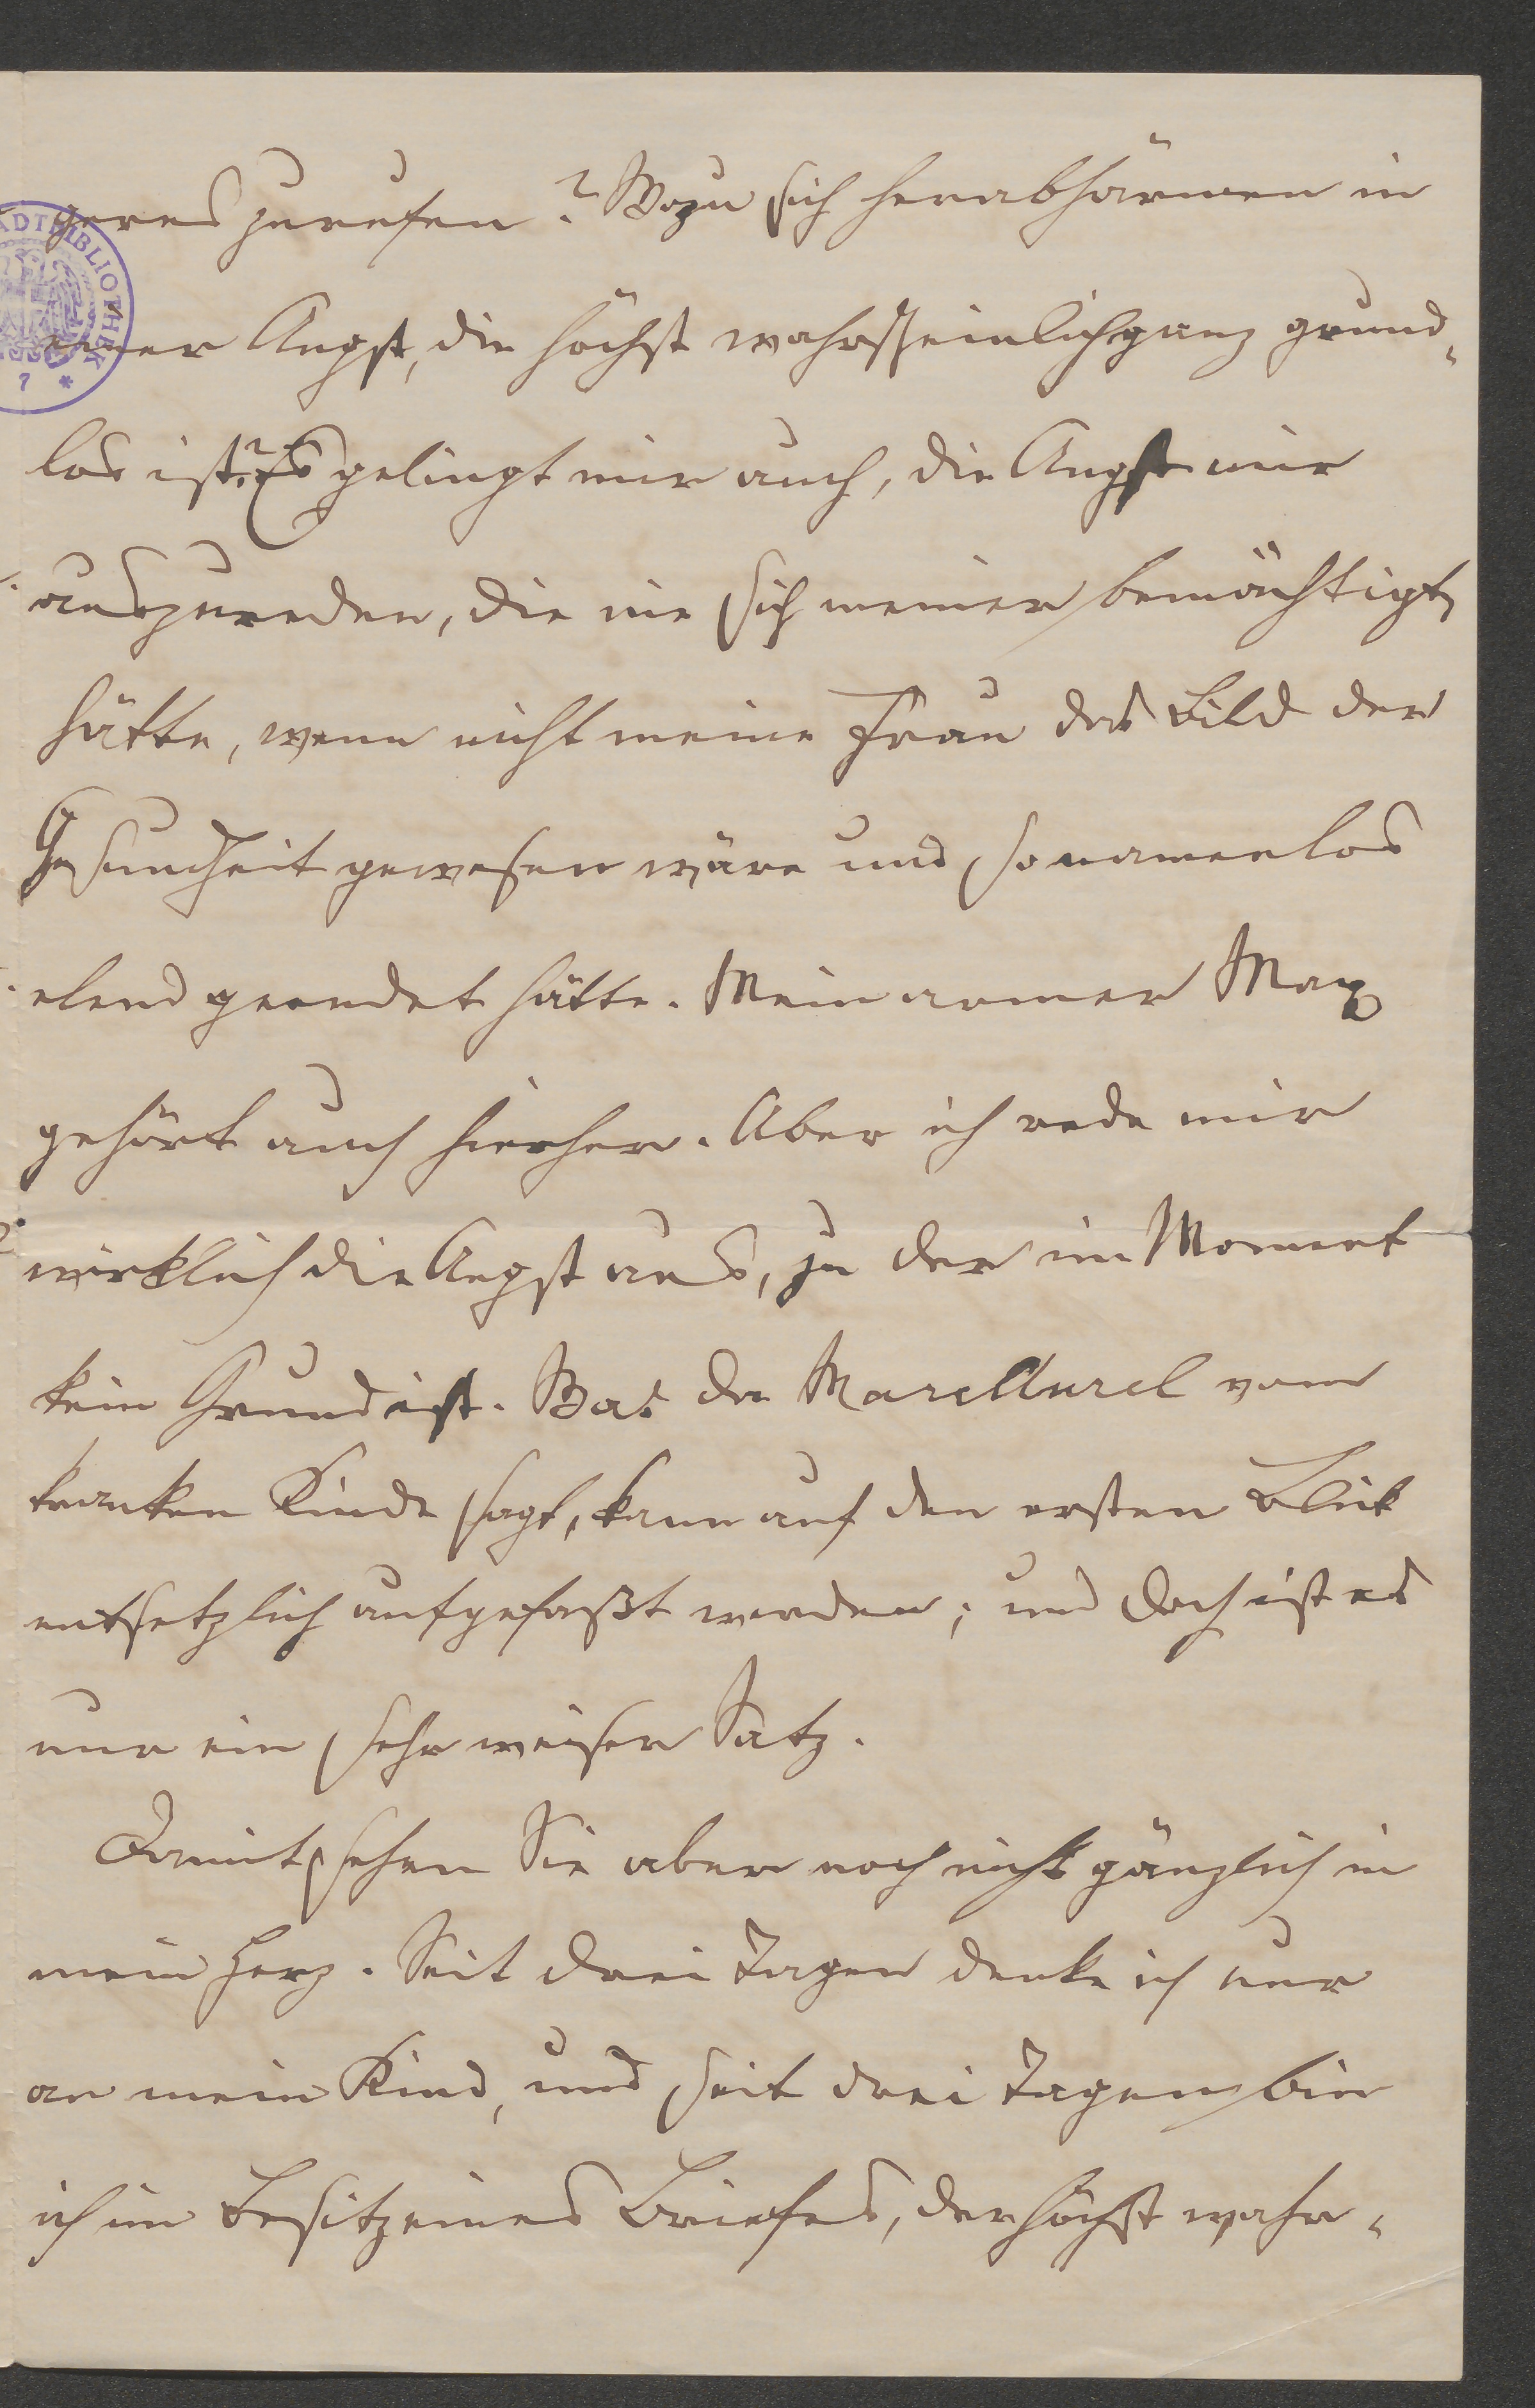 geres zurufen? Wozu sich herabhärmen in
einer Angst, die höchst wahrscheinlich ganz grund-
los ist? Es gelingt mir auch, die Angst mir
auszureden, die nie sich meiner bemächtigt
hätte, wenn nicht meine Frau das Bild der
Gesundheit gewesen wäre und so namenlos
elend geendet hätte. Mein armer Max
gehört auch hierher. Aber ich rede mir
wirklich die Angst aus, zu der im Moment
kein Grund ist. Was der Marc Aurel vom
kranken Kinde sagt, kann auf den ersten Blick
entsetzlich aufgefaßt werden; und doch ist es
nur ein sehr weiser Satz.
Damit sehen Sie aber noch nicht gänzlich in
mein Herz. Seit drei Tagen denke ich nur
an mein Kind, und seit drei Tagen bin
ich im Besitz eines Briefes, der höchst wahr-
STADTBIBLIOTHEK